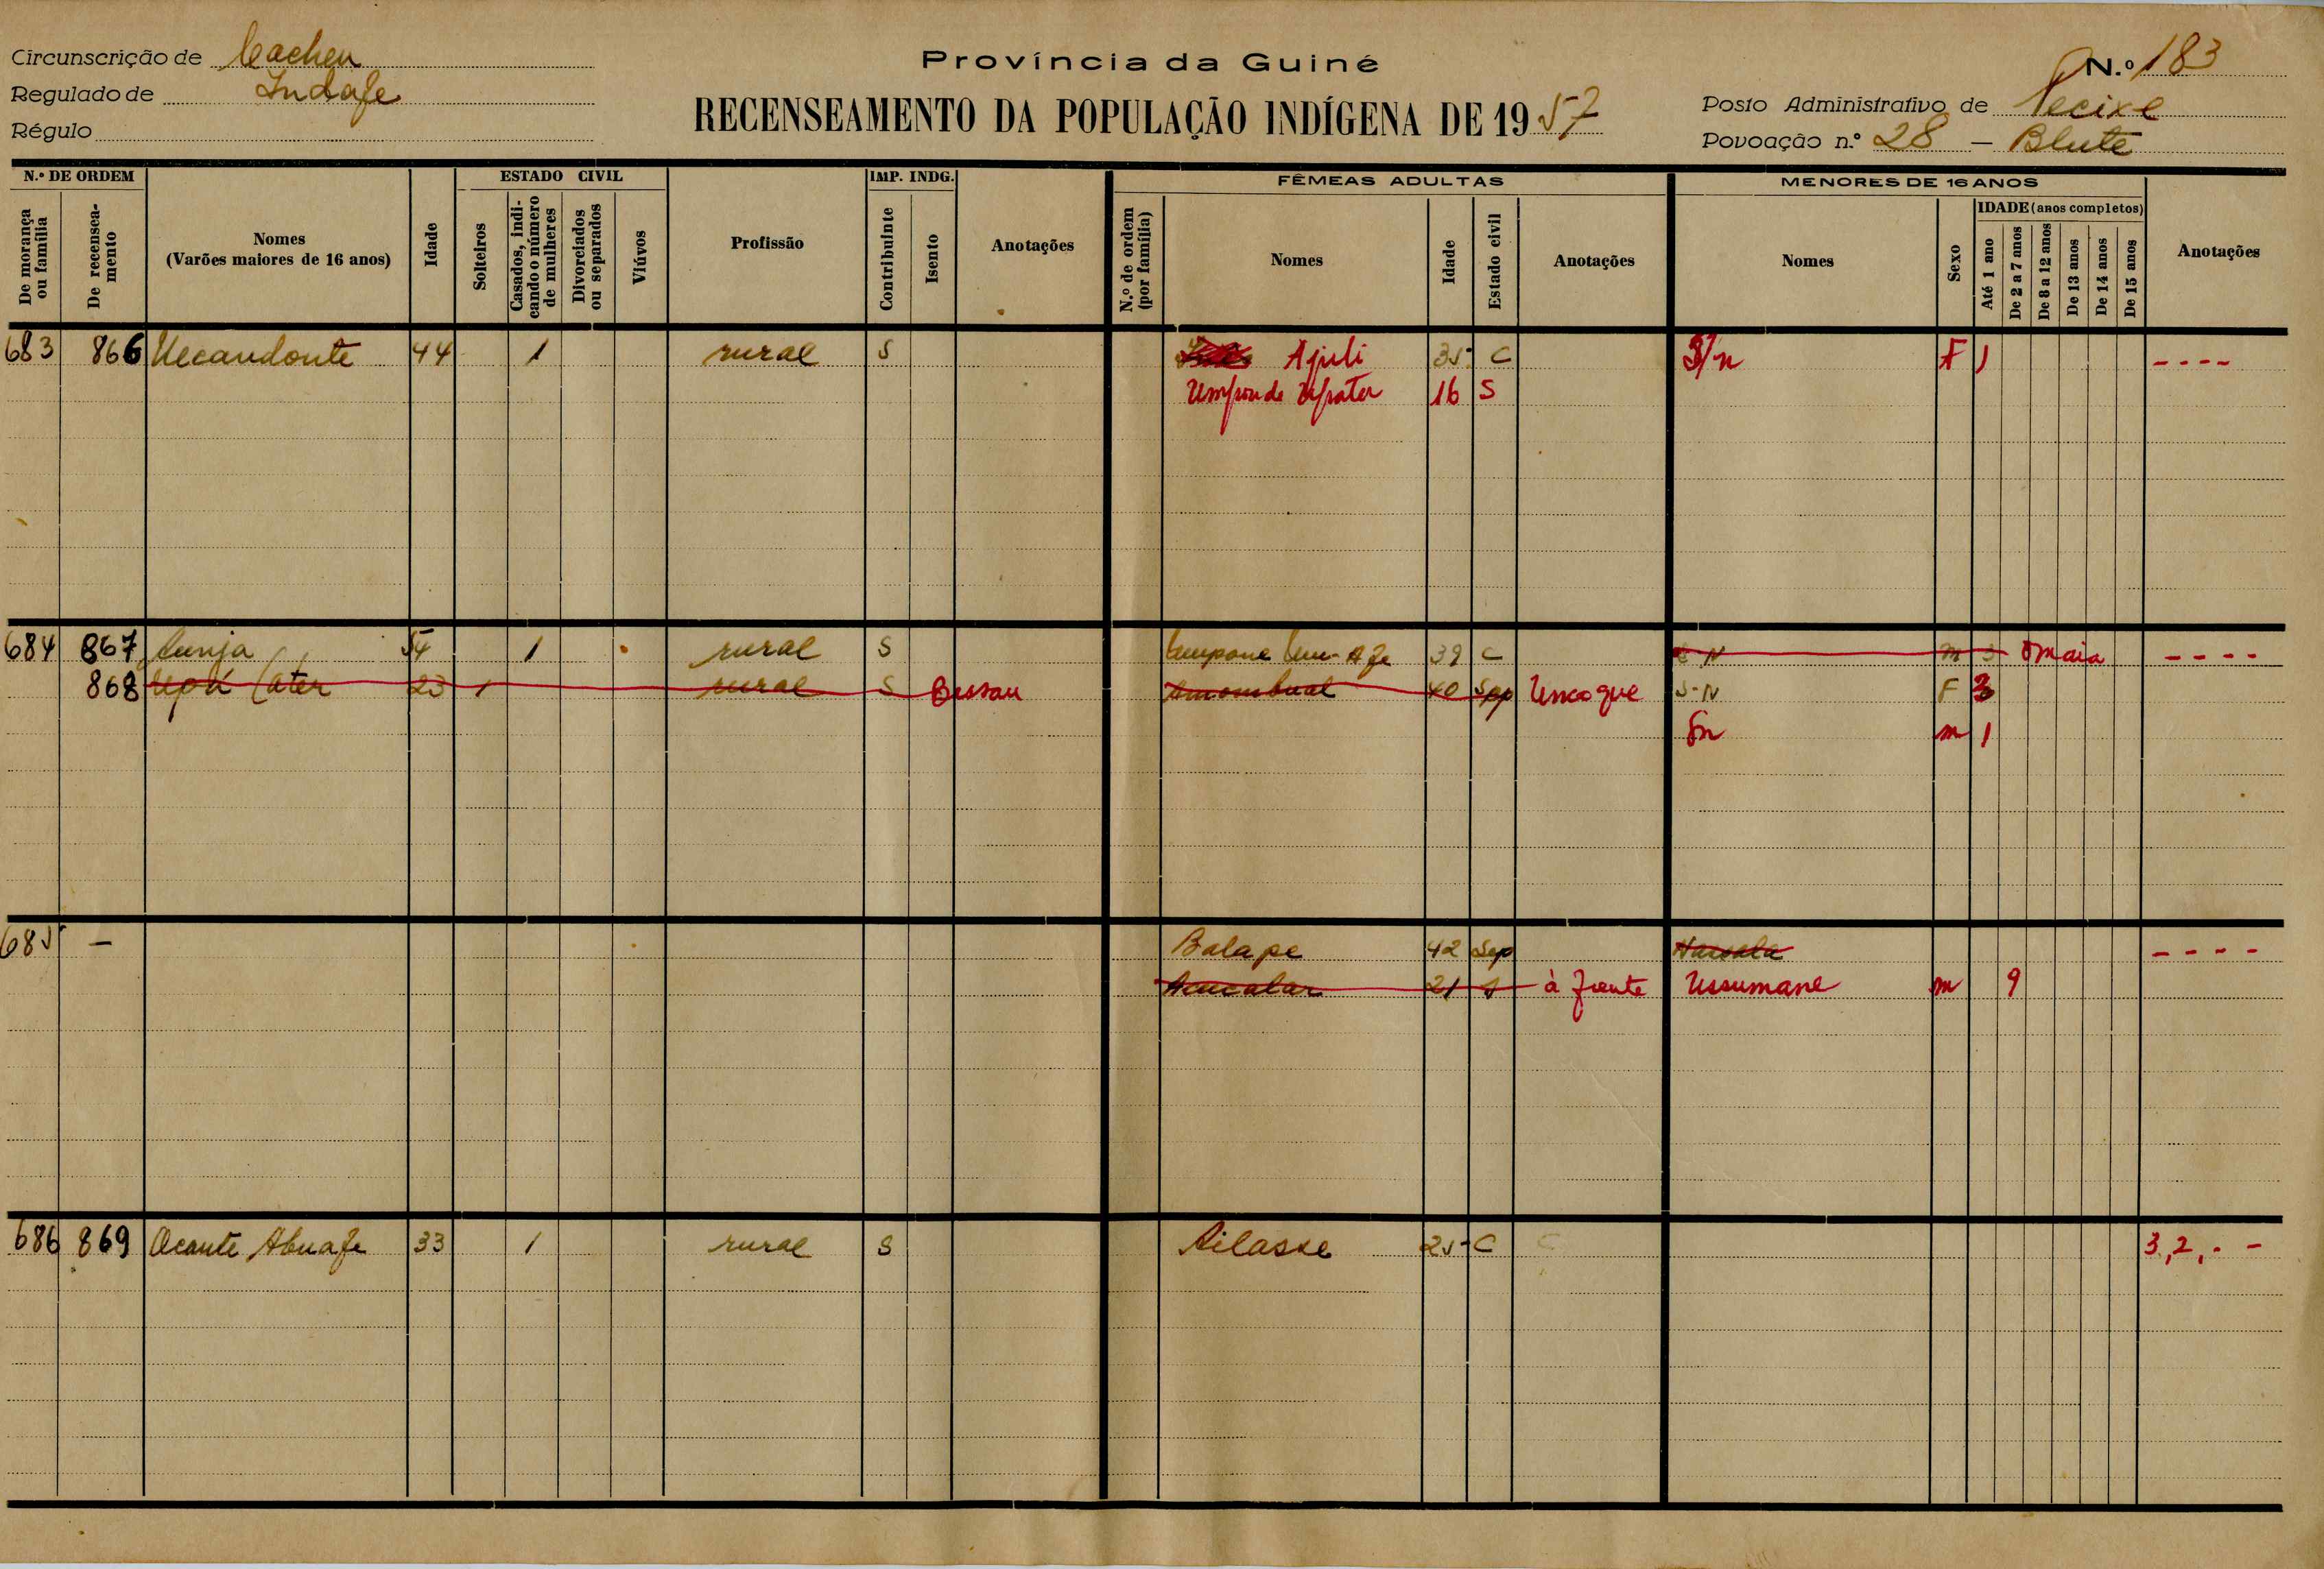 Circunscrição de Cacheu
Regulado de Indafe
Régulo
Província da Guiné
RECENSEAMENTO DA POPULAÇÃO INDÍGENA DE 1957
N.º 183
Posto Administrativo de Pecixe
Povoação n.º 28 — Blute
N.º DE ORDEM
De morança ou família
De recenseamento
Nomes
(Varões maiores de 16 anos)
Idade
ESTADO CIVIL
Solteiros
Casados, indicando o número de mulheres
Divorciados ou separados
Viúvos
Profissão
IMP. INDG.
Contribuinte
Isento
Anotações
FÊMEAS ADULTAS
N.º de ordem (por família)
Nomes
Idade
Estado civil
Anotações
MENORES DE 16 ANOS
Nomes
Sexo
IDADE (anos completos)
Até 1 ano
De 2 a 7 anos
De 8 a 12 anos
De 13 anos
De 14 anos
De 15 anos
Anotações
683 866 Uecandonte 44 1 rural S Ajuli 35 C S/n F 1 - - - -
16 S
684 867 54 1 rural S 39 C S-N m 3 - - - -
868 23 1 rural S Bissau 40 Sep S-N F 3
Sn m 1
685 — Balape 42 Sep - - - -
21 S à frente Ussumane m 9
686 869 Ocante Abuafe 33 1 rural S Ailasse 25 C C 3,2,- -